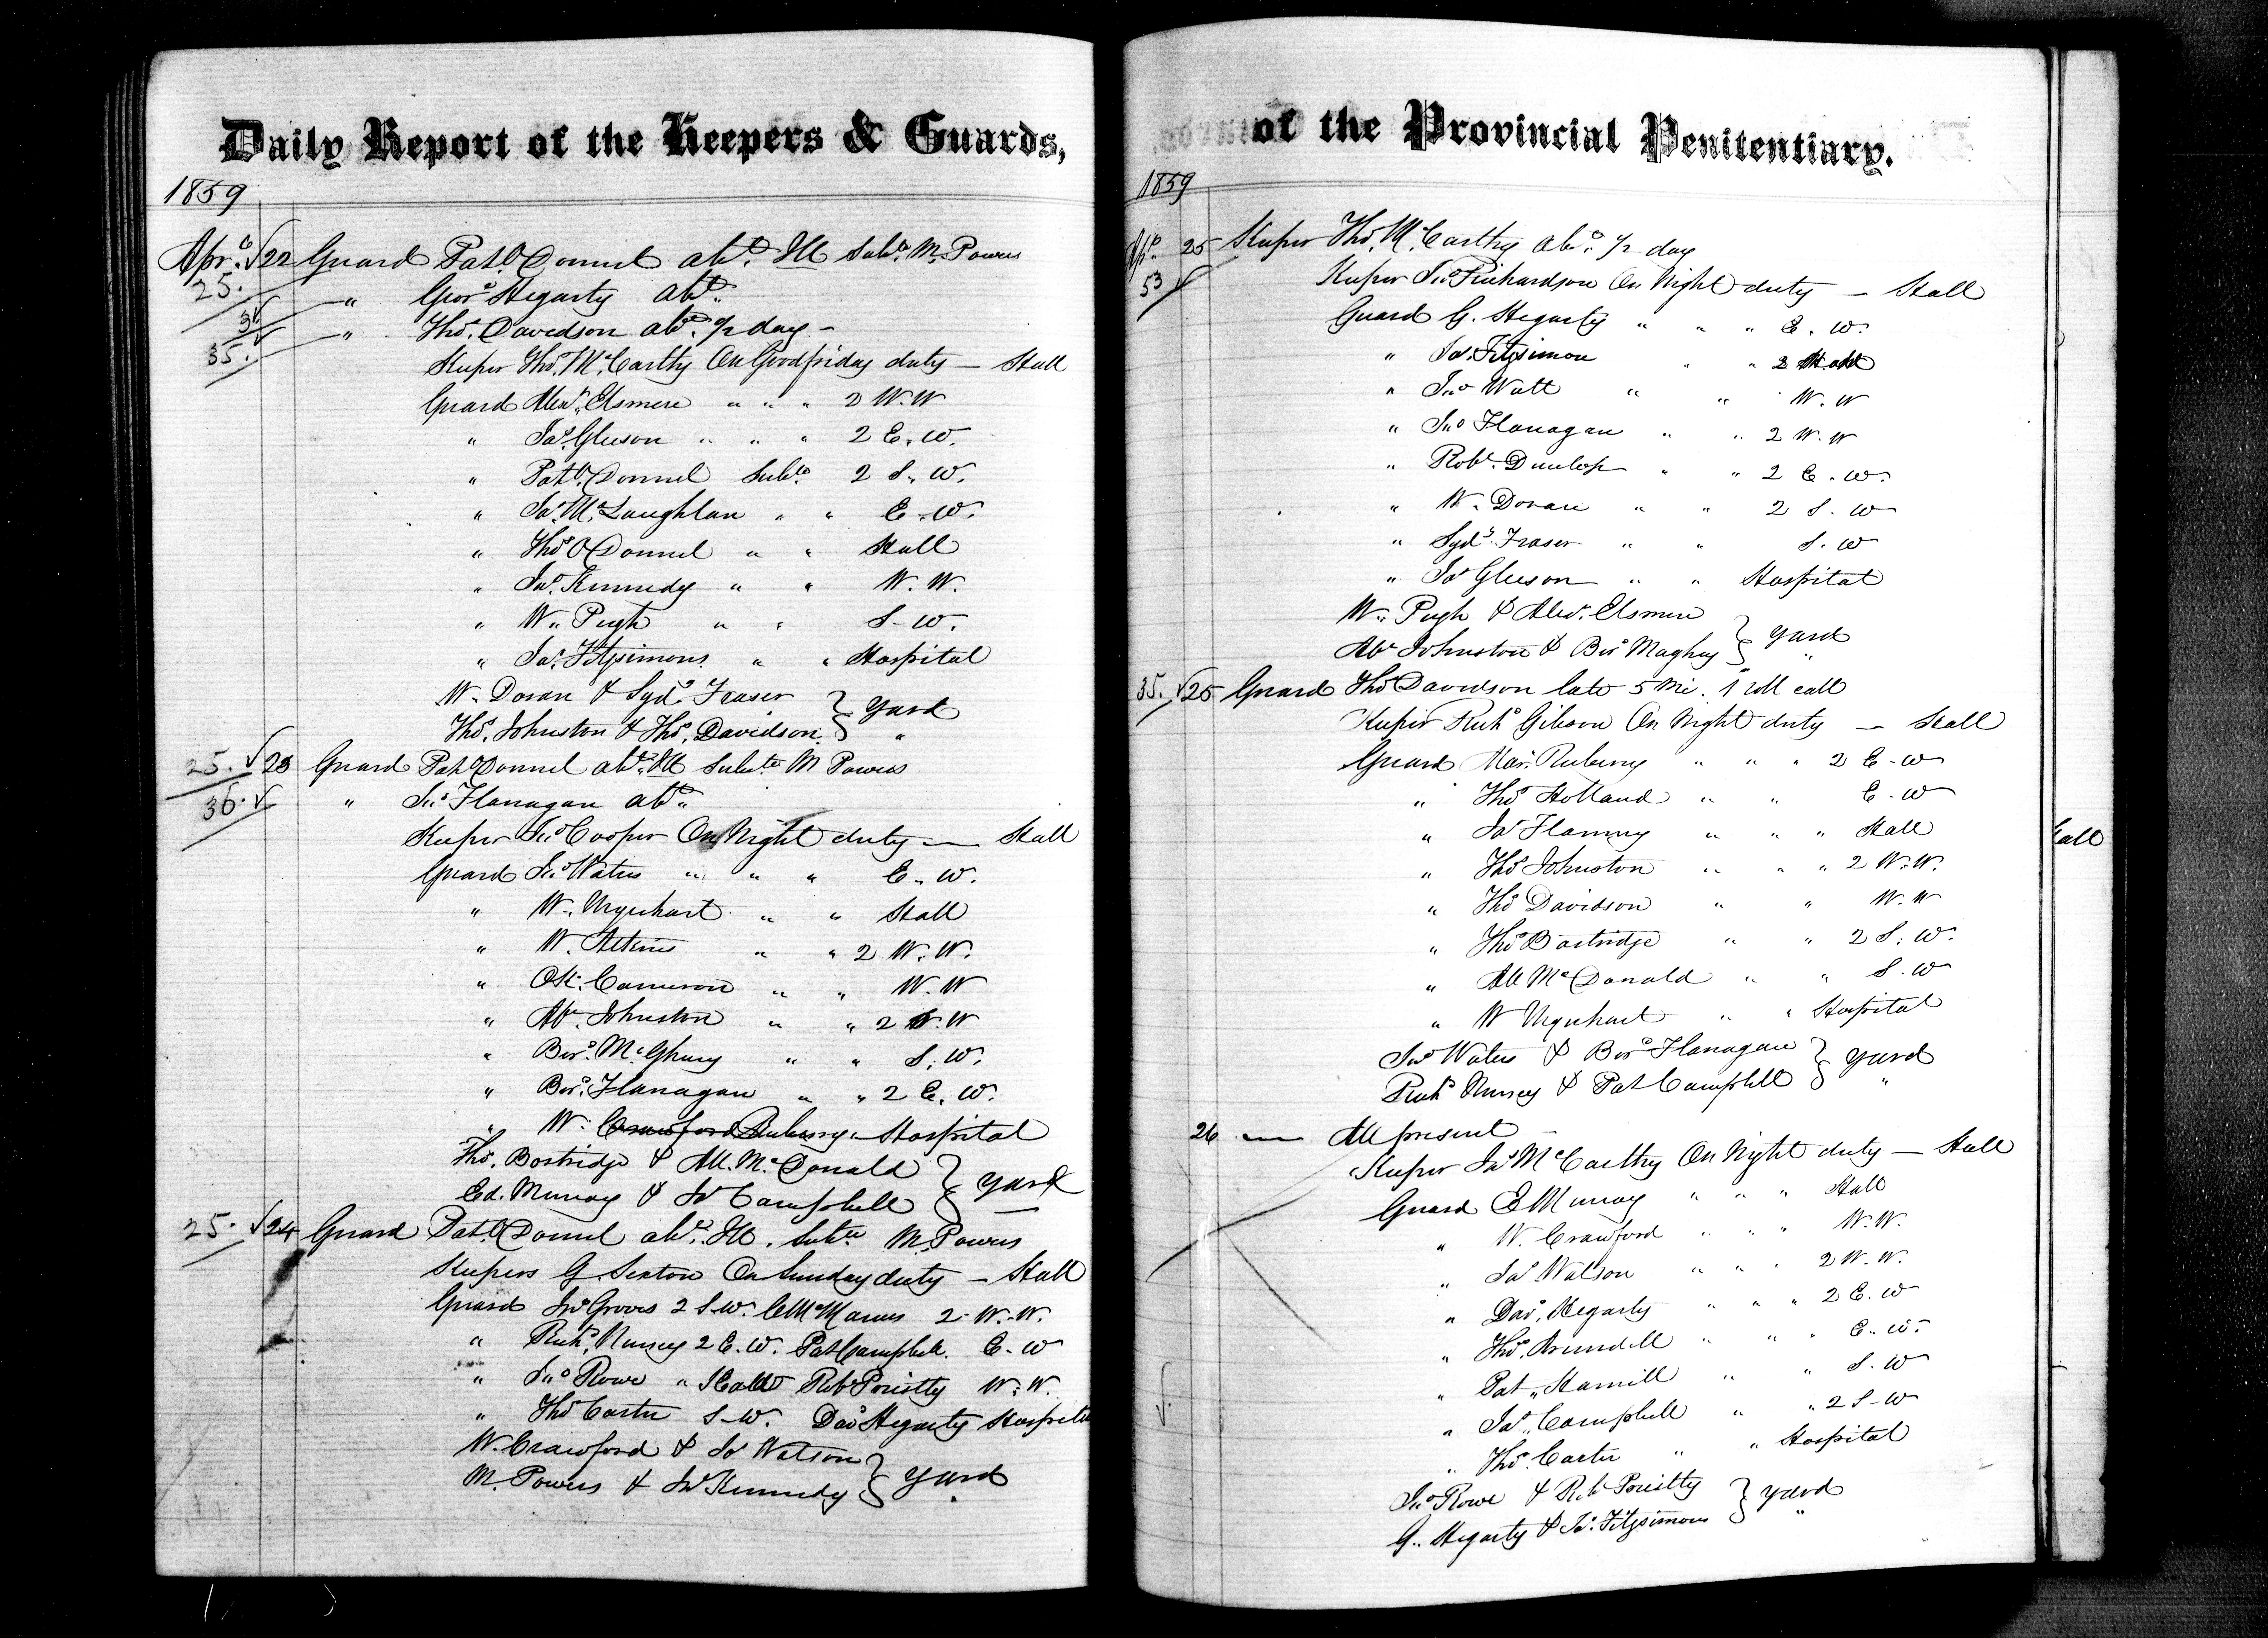 Daily Report of the Keepers & Guards,
1859
Apr. √22 Guard Pat O'Donnel abt. Ill Subte. M. Powers
25. " Geo. Hegarty abt.
" Thos. Davidson abt. 1/2 day -
35. Keeper Thos. McCarthy On Goodfriday duty — Hall
Guard Alexr. Elsmere " " " 2 W. W
" Jas. Gleeson " " " 2 E. W.
" Pat O'Donnel Subte. 2 S. W.
" Jas. McLaughlan " " E. W.
" Thos O'Donnel " " Hall
" Jas. Kennedy " " W. W.
" W. Pugh " " S. W.
" Jas. Fitzsimons " " Hospital
W. Doran & Syd. Fraser } Yard
Thos. Johnston & Thos. Davidson } "
25. √23 Guard Pat O'Donnel abt. Ill Subte M Powers
36. √ " Jno Flanagan abt.
Keeper Jno Cooper On Night duty — Hall
Guard Jno Waters " " " E. W.
" W. Urquhart " " Hall
" W. Atkins " " 2 W. W.
" Cameron " " W. W
" Ab. Johnston " " 2 W
" Ber. McGhuey " " S. W.
" Ber. Flanagan " " 2 E. W.
" W. Crawford Rubeny " Hospital
Thos. Bostridge & All. McDonald } Yard
Ed. Murray & Jas Campbell }
25. √24 Guard Pat O'Donnel abt. Ill. Subte M. Powers
Keepers G. Sexton On Sunday duty — Hall
Guard Jno Groves 2 S. W. C McManus 2 W. W.
" Richd. Nursey 2 E. W. Pat Campbell E. W
" Jno Rowe " Hall Robt Priestly W. W.
" Thos Carter S. W. Dav Hegarty Hospital
W. Crawford & Jas Watson } Yard
M. Powers & Jas Kennedy } "
of the Provincial Penitentiary.
1859
Apr. 25 Keeper Thos. McCarthy abt. 1/2 day
53 √ Keeper Jno Richardson On Night duty — Hall
Guard G. Hegarty " " " E. W.
" Jas. Fitzsimon " " 2 Hall
" Jno Watt " " W. W
" Jno Flanagan " " 2 W. W
" Robt. Dunlop " " 2 E. W.
" W. Doran " " 2 S. W
" Syd. Fraser " " S. W
" Jas Gleeson " " Hospital
W. Pugh & Alexr. Elsmere } Yard
Ab Johnston & Ber Maghuy } "
35. √25 Guard Thos Davidson late 5 Mi. 1 roll call
Keeper Richd Gibson On Night duty — Hall
Guard Mar. Rubeny " " " 2 E. W
" Thos Holland " " E. W
" Jas Flaming " " " Hall
" Thos Johnston " " " 2 W. W.
" Thos Davidson " " W. W
" Thos Bostridge " " 2 S. W.
" All McDonald " " S. W
" W Urquhart " " Hospital
Jno Waters & Ber Flanagan } Yard
Richd Nursey & Pat Campbell } "
26 — All present —
Keeper Jas McCarthy On Night duty — Hall
Guard E Murray " " " Hall
" W. Crawford " " " W. W.
" Jas Watson " " " 2 W. W.
" Dav. Hegarty " " " 2 E. W
" Thos. Brundell " " " E. W.
" Pat. Hamill " " S. W
" Jas. Campbell " " 2 S. W
" Thos. Carter " " Hospital
Jno Rowe & Rob Priestly } Yard
G. Hegarty & Jas. Fitzsimons } "